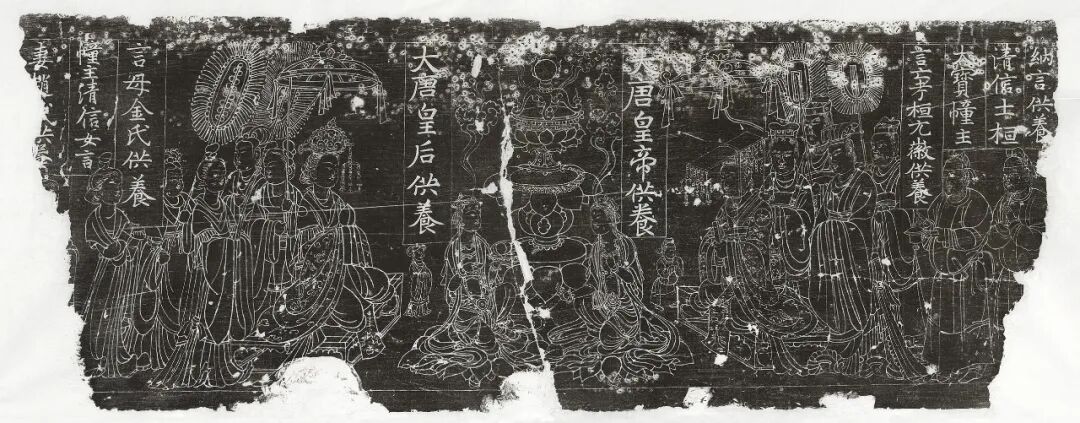 大唐皇帝供養
言考桓元徽供養
大寶幢主
清信士桓
納言供養
大唐皇后供養
言母金氏供養
幢主清信女言
妻趙氏供